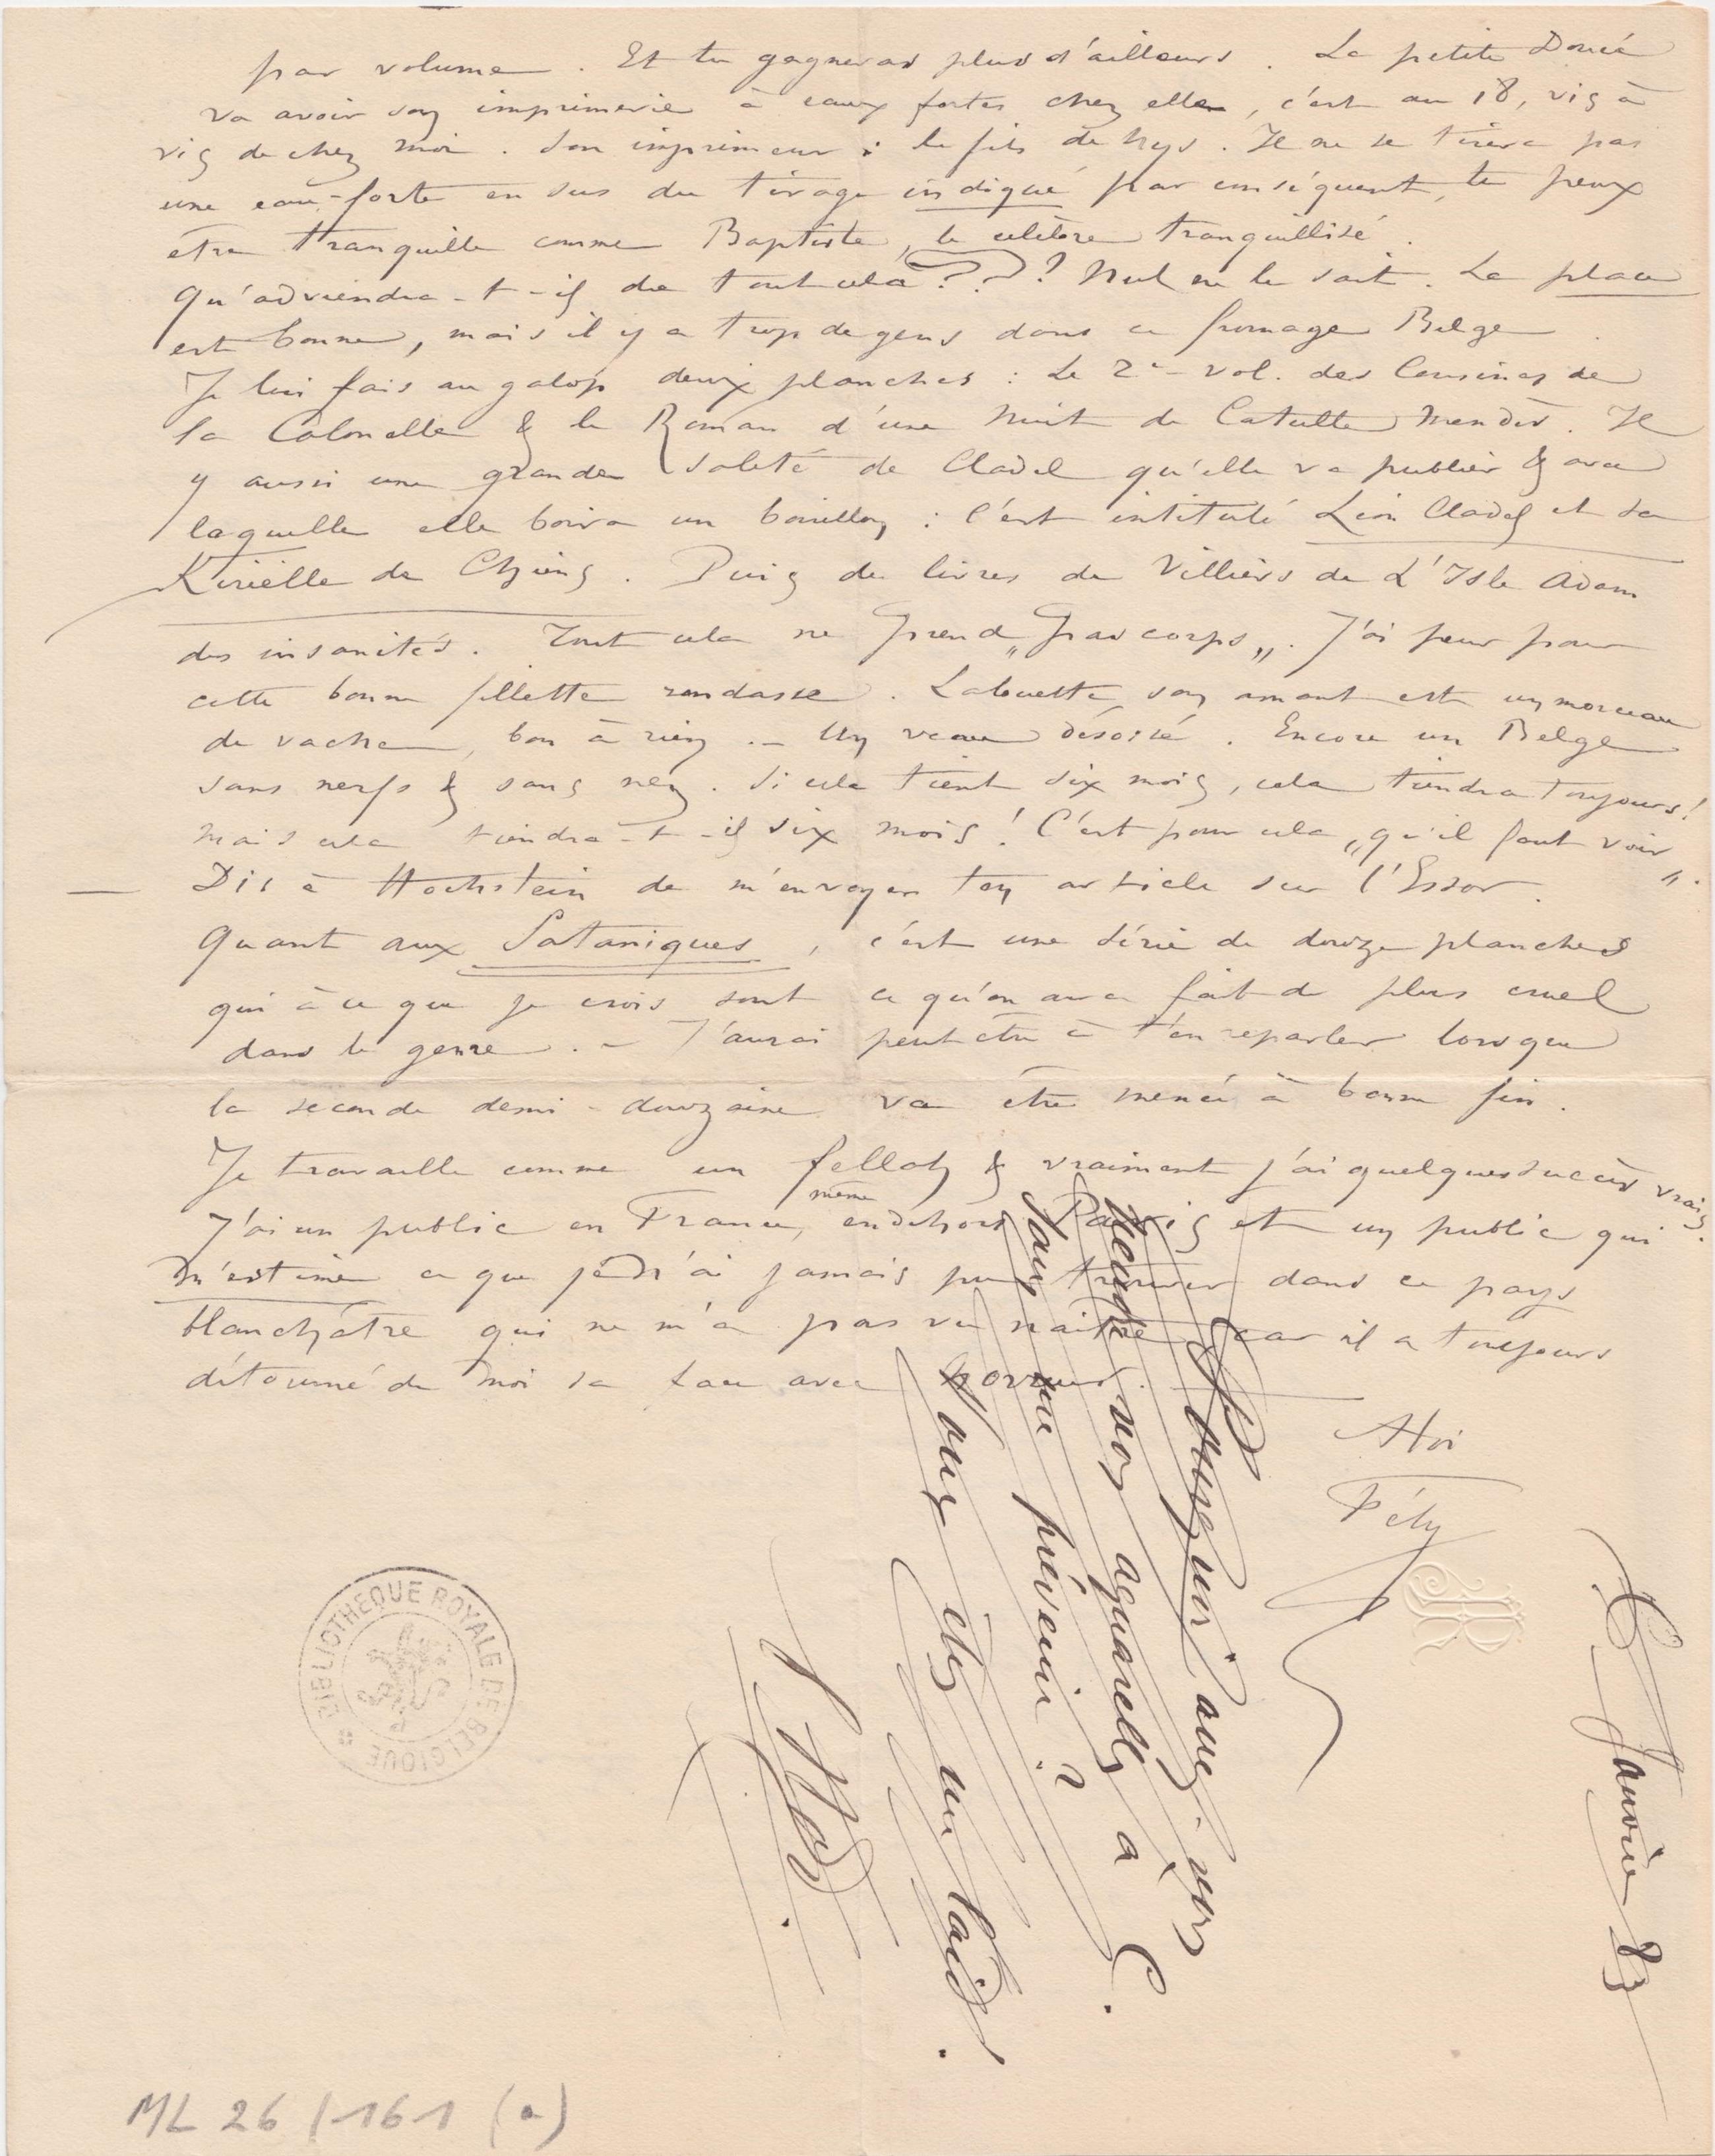 par volume. Et tu gagneras plus d'ailleurs. La petite Doucé
va avoir son imprimerie à eaux fortes chez elle, c'est au 18, vis à
vis de chez moi. Son imprimeur : le fils de Nys. Il ne se tirera pas
une eau-forte en sus du tirage indiqué par conséquent, tu peux
être tranquille comme Baptiste, le célèbre tranquillisé.
Qu'adviendra-t-il de tout cela ??? Nul ne le sait. La place
est bonne, mais il y a trop de gens dans ce fromage Belge.
Je lui fais au galop deux planches : Le 2e vol. des Cousines de
la Colonelle & le Roman d'une Nuit de Catulle Mendès. Il
y aussi une grande saleté de Cladel qu'elle va publier & avec
laquelle elle boira un bouillon : C'est intitulé Léon Cladel et sa
Kirielle de Chiens. Puis de livres de Villiers de L'Isle Adam
des insanités. Tout cela ne prend „pas corps„. J'ai peur pour
cette bonne fillette rondasse. Lalouette, son amant est un morceau
de vache, bon à rien. – Un veau désossé. Encore un Belge
sans nerfs & sans nez. Si cela tient six mois, cela tiendra toujours!
Mais cela tiendra-t-il six mois! C'est pour cela „qu'il faut voir„.
— Dis à Hochstein de m'envoyer ton article sur l'Essor.
Quant aux Sataniques, c'est une série de douze planches
qui à ce que je crois sont ce qu'on aura fait de plus cruel
dans le genre. – J'aurai peut être à t'en reparler lorsque
la seconde demi-douzaine va être menée à bonne fin.
Je travaille comme un fellah & vraiment j'ai quelques succès vrais.
J'ai un public en France, même en dehors Paris et un public qui
m'estime ce que je n'ai jamais pu trouver dans ce pays
blanchâtre qui ne m'a pas vu naître car il a toujours
détourné de moi sa face avec horreur. —
A toi
Fély
que vous
vendre vos aquarelles à C.
sans me prévenir ?
Vous êtes un laid
Janvier 83
BIBLIOTHEQUE ROYALE DE BELGIQUE
ML 26/161 (a)